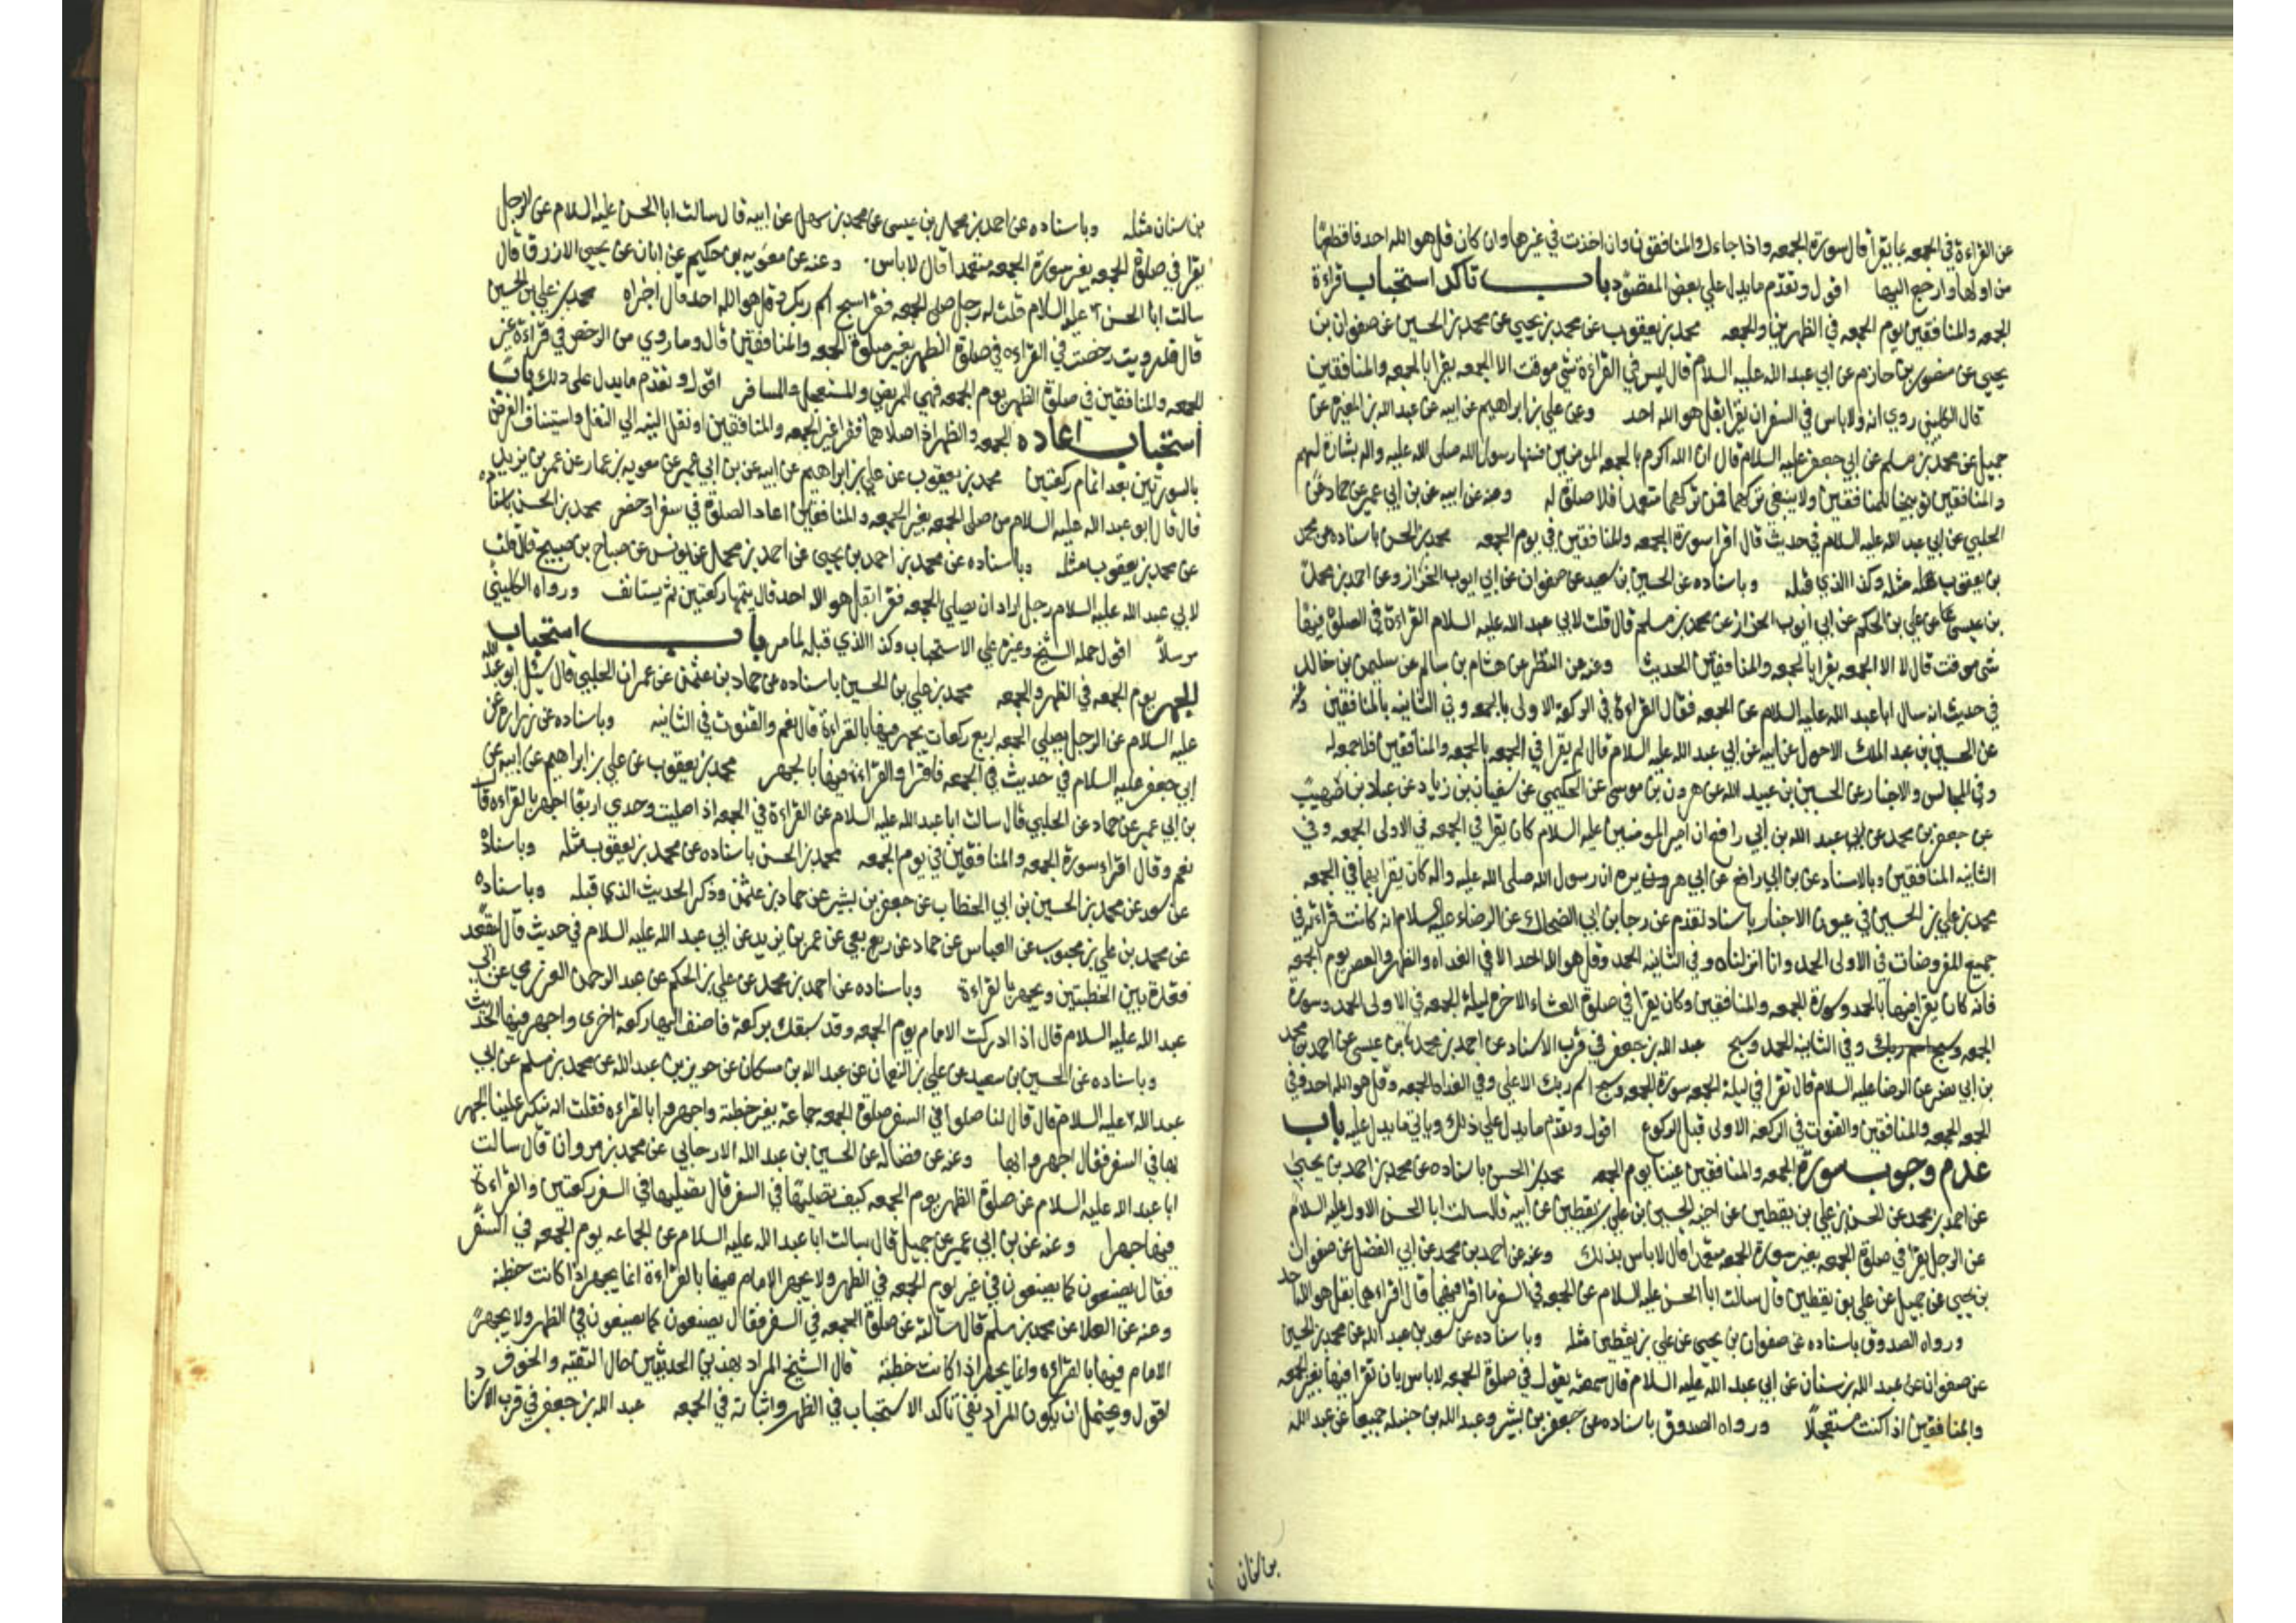 عن القراءة في الجمعه بما يقرأ قال سورة الجمعه واذا جاءك المنافقون وان اخذت في غيرها وان كان قل هو الله احد فاقطعها
من اولها وارجع اليها اقول وتقدم ما يدل علي بعض المقصود باب تاكد استحباب قراءة
الجمعه والمنافقين يوم الجمعه في الظهرين والجمعه محمد بن يعقوب عن محمد بن يحيي عن محمد بن الحسين عن صفوان بن
يحيي عن منصور بن حازم عن ابي عبد الله عليه السلام قال ليس في القراءة شي موقت الا الجمعه يقرا بالجمعه والمنافقين
قال الكليني روي انه ولا باس في السفر ان يقرا بقل هو الله احد وعن علي بن ابراهيم عن ابيه عن عبد الله بن المغيرة عن
جميل عن محمد بن مسلم عن ابي جعفر عليه السلام قال ان الله اكرم بالجمعه المومنين فسنها رسول الله صلى الله عليه واله بشارة لهم
والمنافقين توبيخا للمنافقين ولا ينبغي تركهما فمن تركهما متعمدا فلا صلوة له وعنه عن ابيه عن بن ابي عمير عن حماد عن
الحلبي عن ابي عبد الله عليه السلام في حديث قال اقرا سورة الجمعه والمنافقين في يوم الجمعه محمد بن الحسن باسناده عن محمد
بن يعقوب مثله وكذا الذي قبله وباسناده عن الحسين بن سعيد عن صفوان عن ابي ايوب الخزاز وعن احمد بن محمد
بن عيسى عن علي بن الحكم عن ابي ايوب الخزاز عن محمد بن مسلم قال قلت لابي عبد الله عليه السلام القراءة في الصلوة فيها
شي موقت قال لا الا الجمعه يقرا بالجمعه والمنافقين الحديث وعنه عن النضر عن هشام بن سالم عن سليمن بن خالد
في حديث انه سال ابا عبد الله عليه السلام عن الجمعه فقال القراءة في الركعة الاولى بالجمعه وفي الثانيه بالمنافقين وعنه
عن الحسين بن عبد الملك الاحول عن ابيه عن ابي عبد الله عليه السلام قال من لم يقرا في الجمعه بالجمعه والمنافقين فلا جمعه له
وفي المجالس والاخبار عن الحسين بن عبيد الله عن هرون بن موسى عن الحكيمي عن سفيان بن زياد عن عباد بن صهيب
عن جعفر بن محمد عن ابيه عن عبد الله بن ابي رافع ان امير المومنين عليه السلام كان يقرا في الجمعه في الاولى الجمعه وفي
الثانيه المنافقين وبالاسناد عن بن ابي رافع عن ابي هريره ان رسول الله صلى الله عليه واله كان يقرا بهما في الجمعه
محمد بن علي بن الحسين في عيون الاخبار باسناد تقدم عن رجا بن ابي الضحاك عن الرضاء عليه السلام انه كانت قراءته في
جميع المفروضات في الاولى الحمد وانا انزلناه وفي الثانيه الحمد وقل هو الله احد الا في الغداه والظهر والعصر يوم الجمعه
فانه كان يقرا فيها بالحمد وسورة الجمعه والمنافقين وكان يقرا في صلوة العشاء الاخرة ليلة الجمعه في الاولى الحمد وسورة
الجمعه وسبح اسم ربك وفي الثانيه الحمد وسبح عبد الله بن جعفر في قرب الاسناد عن احمد بن محمد بن عيسى عن احمد بن محمد
بن ابي نصر عن الرضا عليه السلام قال تقرا في ليلة الجمعه سورة الجمعه وسبح اسم ربك الاعلى وفي الغداه الجمعه وقل هو الله احد وفي
الجمعه الجمعه والمنافقين والقنوت في الركعة الاولى قبل الركوع اقول وتقدم ما يدل علي ذلك وياتي ما يدل عليه باب
عدم وجوب سورة الجمعه والمنافقين عينا يوم الجمعه محمد بن الحسن باسناده عن محمد بن احمد بن يحيى
عن احمد بن محمد عن الحسن بن علي بن يقطين عن اخيه الحسين بن علي بن يقطين عن ابيه قال سالت ابا الحسن الاول عليه السلام
عن الرجل يقرا في صلوة الجمعه بغير سورة الجمعه متعمدا قال لا باس بذلك وعنه عن احمد بن محمد عن ابي الفضل عن صفوان
بن يحيى عن جميل عن علي بن يقطين قال سالت ابا الحسن عليه السلام عن الجمعه في السفر ما اقرا فيهما قال اقراءهما بقل هو الله احد
ورواه الصدوق باسناده عن صفوان بن يحيى عن علي بن يقطين مثله وباسناده عن سعد بن عبد الله عن محمد بن الحسين
عن صفوان عن عبد الله بن سنان عن ابي عبد الله عليه السلام قال سمعته يقول في صلوة الجمعه لا باس بان تقرا فيها بغير الجمعه
والمنافقين اذا كنت مستعجلا ورواه الصدوق باسناده عن جعفر بن بشير وعبد الله بن جبله جميعا عن عبد الله
بن سنان
بن سنان مثله وباسناده عن احمد بن محمد بن عيسى عن محمد بن سهل عن ابيه قال سالت ابا الحسن عليه السلام عن الرجل
يقرا في صلوة الجمعه بغير سورة الجمعه متعمدا قال لا باس وعنه عن معويه بن حكيم عن ابان عن يحيى الازرق قال
سالت ابا الحسن عليه السلام قلت له رجل صلى الجمعه فقرا سبح اسم ربك وقل هو الله احد قال اجزاه محمد بن علي بن الحسين
قال قد رويت رخصة في القراءه في صلوة الظهر بغير سورة الجمعه والمنافقين قال وما روي من الرخص في قراءة غير
الجمعه والمنافقين في صلوة الظهر يوم الجمعه فهي للمريض والمستعجل والمسافر اقول وتقدم ما يدل على ذلك باب
استحباب اعاده الجمعه والظهر اذا صلاهما فقرا غير الجمعه والمنافقين او نقل النيه الي النفل واستيناف الفرض
بالسورتين بعد اتمام ركعتين محمد بن يعقوب عن علي بن ابراهيم عن ابيه عن بن ابي عمير عن معويه بن عمار عن عمر بن يزيد
قال قال ابو عبد الله عليه السلام من صلى الجمعه بغير الجمعه والمنافقين اعاد الصلوة في سفر او حضر محمد بن الحسن باسناده
عن محمد بن يعقوب مثله وباسناده عن محمد بن احمد بن يحيى عن احمد بن محمد عن يونس عن صباح بن صبيح قال قلت
لابي عبد الله عليه السلام رجل اراد ان يصلي الجمعه فقرا بقل هو الله احد قال يتمها ركعتين ثم يستانف ورواه الكليني
مرسلا اقول حمله الشيخ وغيره علي الاستحباب وكذا الذي قبله لما مر باب استحباب
الجهر يوم الجمعه في الظهر والجمعه محمد بن علي بن الحسين باسناده عن حماد بن عثمن عن عمران الحلبي قال سئل ابو عبد الله
عليه السلام عن الرجل يصلي الجمعه اربع ركعات يجهر فيها بالقراءة قال نعم والقنوت في الثانيه وباسناده عن زرارة عن
ابي جعفر عليه السلام في حديث في الجمعه فاقرا والقراءة فيها بالجهر محمد بن يعقوب عن علي بن ابراهيم عن ابيه عن
بن ابي عمير عن حماد عن الحلبي قال سالت ابا عبد الله عليه السلام عن القراءة في الجمعه اذا صليت وحدي اربعا اجهر بالقراءه قال
نعم وقال اقراء سورة الجمعه والمنافقين في يوم الجمعه محمد بن الحسن باسناده عن محمد بن يعقوب مثله وباسناده
عن سعد عن محمد بن الحسين بن ابي الخطاب عن جعفر بن بشير عن حماد بن عثمن وذكر الحديث الذي قبله وباسناده
عن محمد بن علي بن محبوب عن العباس عن حماد عن ربعي عن عمر بن يزيد عن ابي عبد الله عليه السلام في حديث قال ليقعد
قعدة بين الخطبتين ويجهر بالقراءة وباسناده عن احمد بن محمد عن علي بن الحكم عن عبد الرحمن العرزمي عن ابي
عبد الله عليه السلام قال اذا ادركت الامام يوم الجمعه وقد سبقك بركعة فاضف اليها ركعة اخرى واجهر فيها الحديث
وباسناده عن الحسين بن سعيد عن علي بن النعمان عن عبد الله بن مسكان عن حريز بن عبد الله عن محمد بن مسلم عن ابي
عبد الله عليه السلام قال قال لنا صلوا في السفر صلوة الجمعه جماعة بغير خطبة واجهروا بالقراءه فقلت انه ينكر علينا الجهر
بها في السفر فقال اجهروا بها وعنه عن فضاله عن الحسين بن عبد الله الارجاني عن محمد بن مروان قال سالت
ابا عبد الله عليه السلام عن صلوة الظهر يوم الجمعه كيف نصليها في السفر قال تصليها في السفر ركعتين والقراءة
فيها جهرا وعنه عن بن ابي عمير عن جميل قال سالت ابا عبد الله عليه السلام عن الجماعه يوم الجمعه في السفر
فقال يصنعون كما يصنعون في غير يوم الجمعه في الظهر ولا يجهر الامام فيها بالقراءة انما يجهر اذا كانت خطبة
وعنه عن العلا عن محمد بن مسلم قال سالته عن صلوة الجمعه في السفر فقال يصنعون كما يصنعون في الظهر ولا يجهر
الامام فيها بالقراءه وانما يجهر اذا كانت خطبة قال الشيخ المراد بهذين الحديثين حال التقيه والخوف
اقول ويحتمل ان يكون المراد نفي تاكد الاستحباب في الظهر واثباته في الجمعه عبد الله بن جعفر في قرب الاسناد